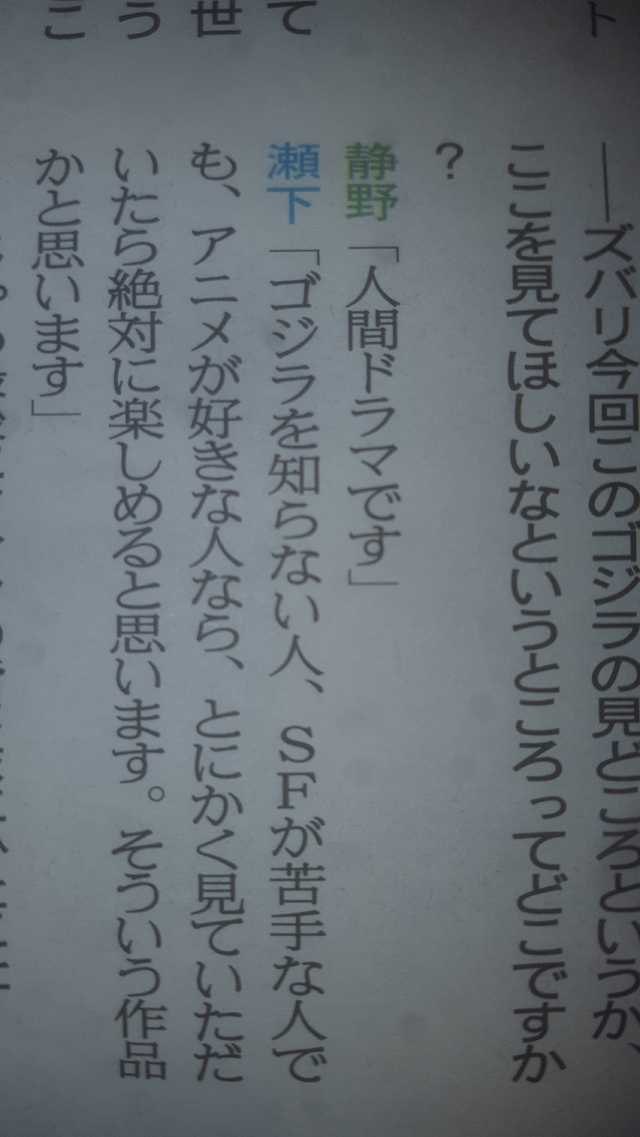 ト
――ズバリ今回このゴジラの見どころというか、
ここを見てほしいなというところってどこですか
？
静野「人間ドラマです」
て
瀬下「ゴジラを知らない人、ＳＦが苦手な人で
世
も、アニメが好きな人なら、とにかく見ていただ
う
いたら絶対に楽しめると思います。そういう作品
こ
かと思います」